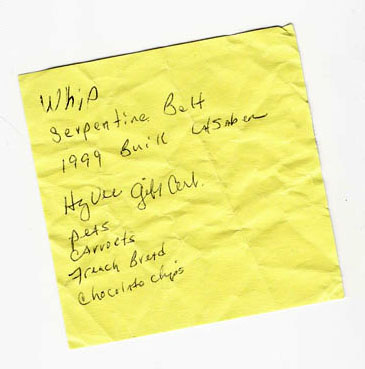 Whip
Serpentine Belt
1999 Buick LaSaber
HyVee Gift Cert.
pets
carroets
French Bread
Chocolate chips